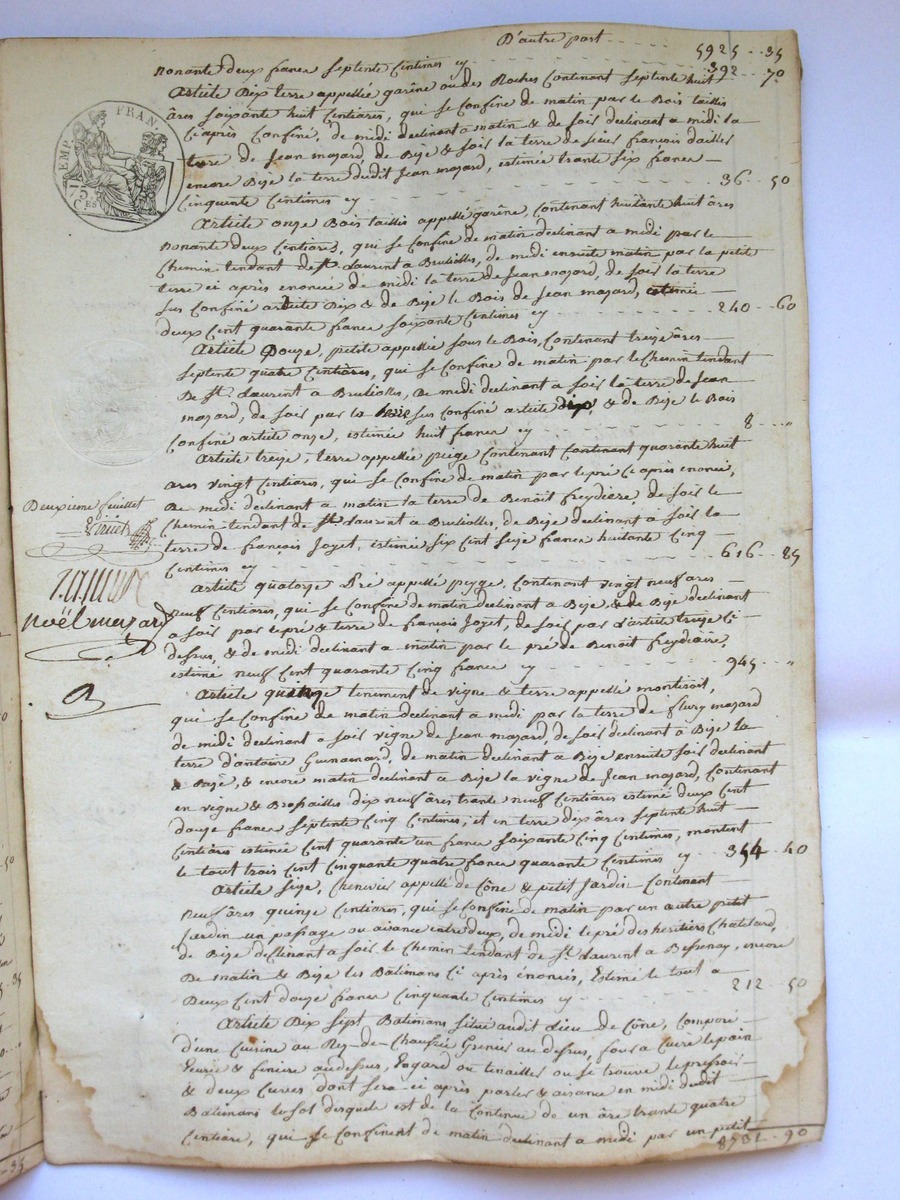 D'autre part - - - - - 5925 - - 35
nonante deux francs septente Centimes cy - - - - - 392 - - 70
Article Dix terre appellée garêne ou des Roches Contenant septente huit
âres soixante huit Centiares, qui se Confine de matin par le Bois taillis
Ci après Confiné, de midi declinant a matin & de soir declinant a midi la
terre de Jean mazard, de Bize & soir la terre de sieur françois dailler
encore Bize la terre dudit Jean mazard, estimée trante six francs
Cinquante Centimes cy - - - - - 36 - - 50
Article onze Bois taillis appellé garêne, Contenant huitante huit âres
nonante deux Centiares, qui se Confine de matin declinant a midi par le
Chemin tendant de St Laurent a Brulioles, de midi ensuite matin par la petite
terre ci après enoncée de midi la terre de Jean mazard, de soir la terre
sus Confiné article Dix & de Bize le Bois de Jean mazard, estimée
deux Cent quarante francs soixante Centimes cy - - - - - 240 - - 60
Article Douze, petite appellée sous le Bois, Contenant treize âres
septente quatre Centiares, qui se Confine de matin par le Chemin tendant
De St Laurent a Brulioles, De midi declinant a soir la terre de Jean
mazard, de soir par la sus Confiné article dix, & de Bize le Bois
Confiné article onze, estimée huit francs cy - - - - - 8 - - "
Article treize, terre appellée piege Contenant Contenant quarante huit
ares vingt Centiares, qui se Confine de matin par le pré Ci après enoncé,
De midi declinant a matin la terre de Benoît freydiere, de soir le
Chemin tendant de St Laurent a Brulioles, de Bize declinant a soir la
terre de françois Joyet, estimée six Cent seize francs huitante Cinq
Centimes cy - - - - - 616 - - 85
Deuxieme feuillet
Article quatorze Pré appellé pyge, Contenant vingt neuf ares
neuf Centiares, qui se Confine de matin declinant a Bize, & de Bize declinant
a soir par le pré & terre de françois Joyet, de soir par l'article treize Ci
dessus, & de midi declinant a matin par le pré de Benoît freydiere,
estimé neuf Cent quarante Cinq francs cy - - - - - 945 - - "
noël mazard
Article quinze teniment de vigne & terre appellé montiroit,
qui se Confine de matin declinant a midi par la terre de fleury mazard
de midi declinant a soir vigne de Jean mazard de soir declinant a Bize la
terre d'antoine Guinamard, de matin declinant a Bize ensuite soir declinant
a Bize, & encore matin declinant a Bize la vigne de Jean mazard, Contenant
en vigne & Brossailles dix neuf âres trante neuf Centiares estimé deux Cent
douze francs septente Cinq Centimes, et en terre dix âres septente huit
Centiares estimée Cent quarante un francs soixante Cinq Centimes, montent
le tout trois Cent Cinquante quatre francs quarante Centimes cy - - 354 - - 40
Article seize, Chenevier appellé de Cône & petit Jardin Contenant
neuf âres quinze Centiares, qui se Confine de matin par un autre petit
Jardin un passage ou aisance entre deux, de midi le pré des heritiers Chatelard,
de Bize declinant a soir le Chemin tendant de St Laurent a Bessenay, encore
De matin & Bize les Bâtimans Ci après énoncés, Estimé le tout a
Deux Cent douze francs Cinquante Centimes cy - - - - - 212 - - 50
Article Dix sept Batimans situé audit Lieu de Cône, Composé
d'une Cuisine au Rez-de-Chaussée Grenier au dessus, four a Cuire le pain
Ecurie & feniere au dessus, hogard ou tenailler ou se trouve le pressoir
& deux Cuves dont sera ci après parler & aisance en midi dudit
Batimans le sol desquels est de la Contenue de un âre trante quatre
Centiare, qui se Confinent de matin declinant a midi par un petit
8731 - - 90
EMP. FRAN.
75
CES